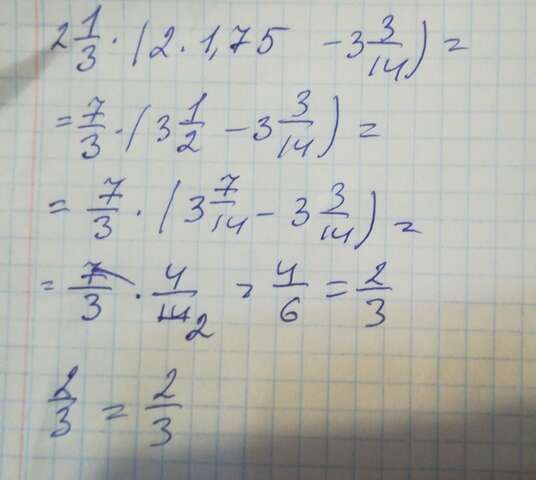 2 1/3 · (2 · 1,75 - 3 3/14) =
= 7/3 · (3 1/2 - 3 3/14) =
= 7/3 · (3 7/14 - 3 3/14) =
= 7/3 · 4/14 2 = 4/6 = 2/3
2/3 = 2/3